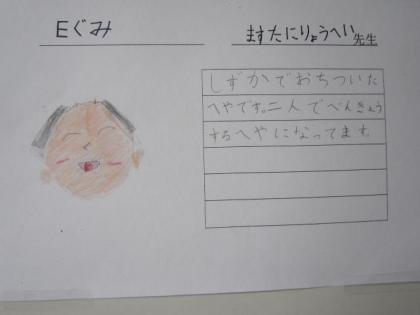 Eぐみ
ますたにりょうへい先生
しずかでおちついた
へやです。二人でべんきょう
するへやになってます。